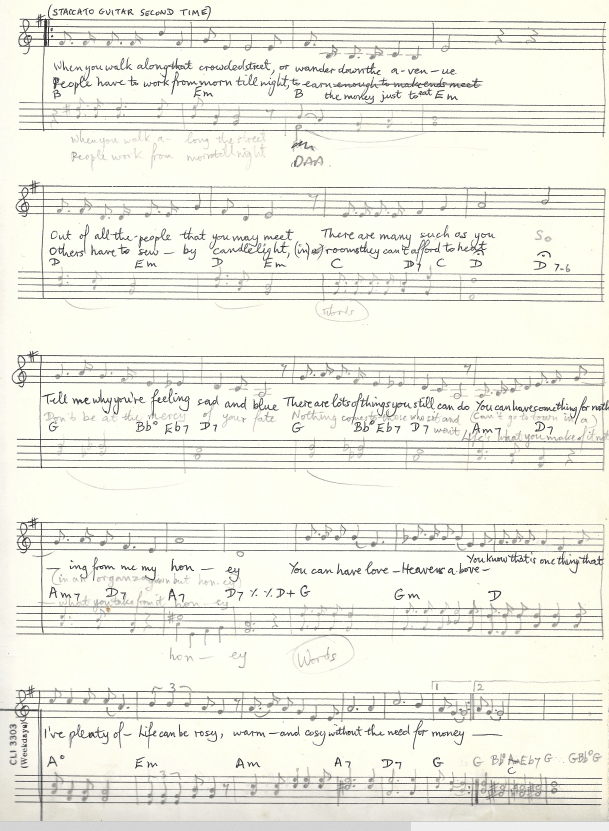 (STACCATO GUITAR SECOND TIME)
When you walk along that crowded street, or wander down the a-ven-ue
People have to work from morn till night, to earn enough to make ends meet
the money just to eat
B Em B Em
When you walk a- long the street
People work from morn till night
Out of all the people that you may meet There are many such as you So
Others have to sew — by candlelight, (in) (as) rooms they can't afford to heat
D Em D Em C D7 C D D 7-6
Words
Tell me why you're feeling sad and blue There are lots of things you still can do You can have something for noth
Don't be at the mercy of your fate Nothing comes to those who sit and wait
Life's what you make of it not
G Bb° Eb7 D7 G Bb° Eb7 D7 Am7 D7
— ing from me my hon — ey You can have love — Heavens above — You know that is one thing that
— what you take from it hon — ey
Am7 D7 A7 D7 ٪ ٪ D+ G Gm D
hon — ey Words
1 2
I've plenty of — Life can be rosy, warm — and cosy without the need for money —
A° Em Am A7 D7 G G Bb° Eb7 G GBb°G
C
CLI 3303
(Weekdays)